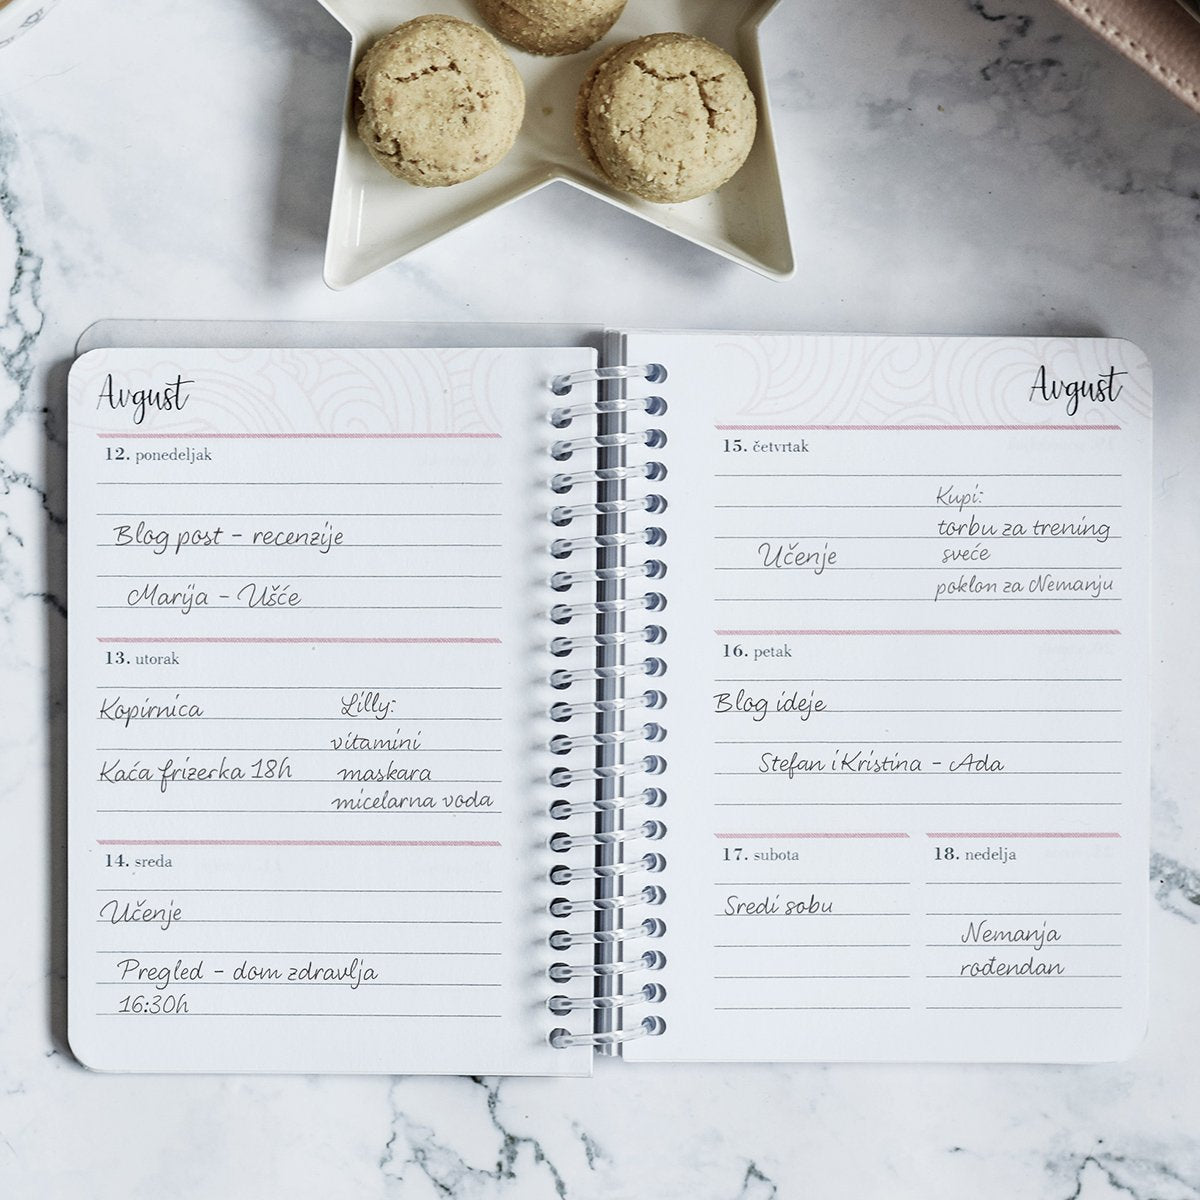 Avgust
12. ponedeljak
Blog post - recenzije
Marija - Ušće
13. utorak
Kopirnica
Kaća frizerka 18h
Lilly:
vitamini
maskara
micelarna voda
14. sreda
Učenje
Pregled - dom zdravlja
16:30h
Avgust
15. četvrtak
Učenje
Kupi:
torbu za trening
sveće
poklon za Nemanju
16. petak
Blog ideje
Stefan i Kristina - Ada
17. subota
Sredi sobu
18. nedelja
Nemanja
rođendan